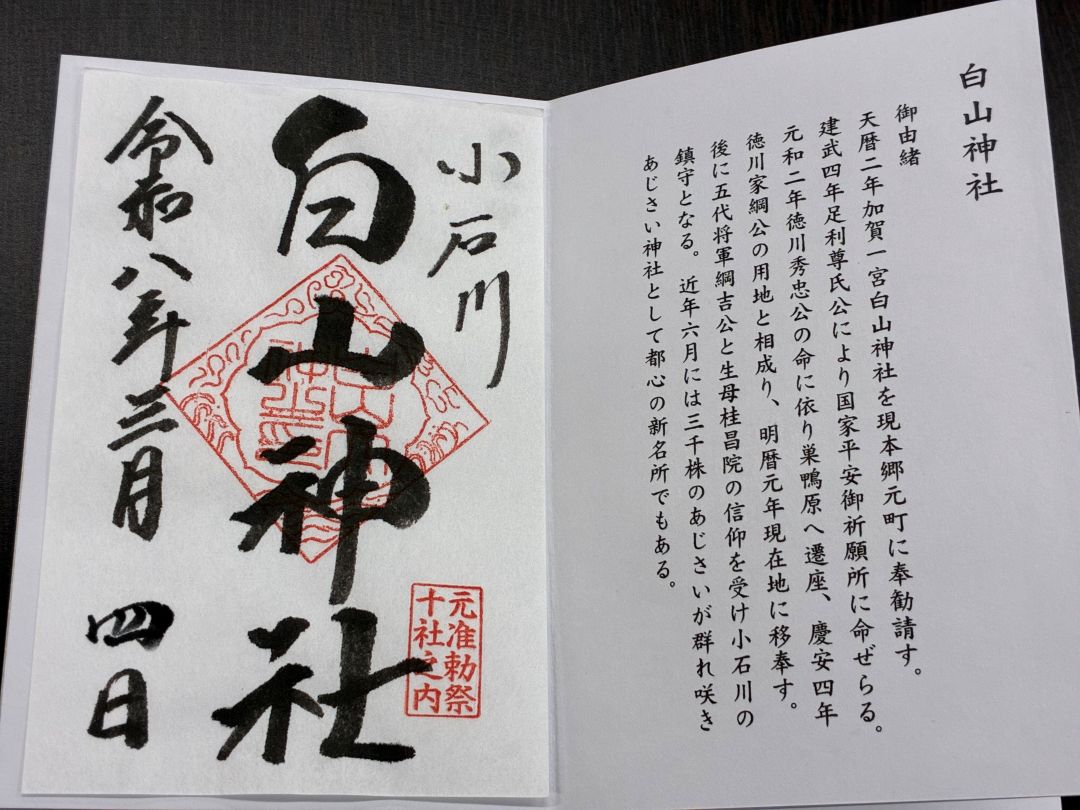 白山神社
御由緒
天暦二年加賀一宮白山神社を現本郷元町に奉勧請す。
建武四年足利尊氏公により国家平安御祈願所に命ぜらる。
元和二年徳川秀忠公の命に依り巣鴨原へ遷座、慶安四年
徳川家綱公の用地と相成り、明暦元年現在地に移奉す。
後に五代将軍綱吉公と生母桂昌院の信仰を受け小石川の
鎮守となる。近年六月には三千株のあじさいが群れ咲き
あじさい神社として都心の新名所でもある。
小石川
白山神社
元准勅祭
十社之内
令和八年三月四日